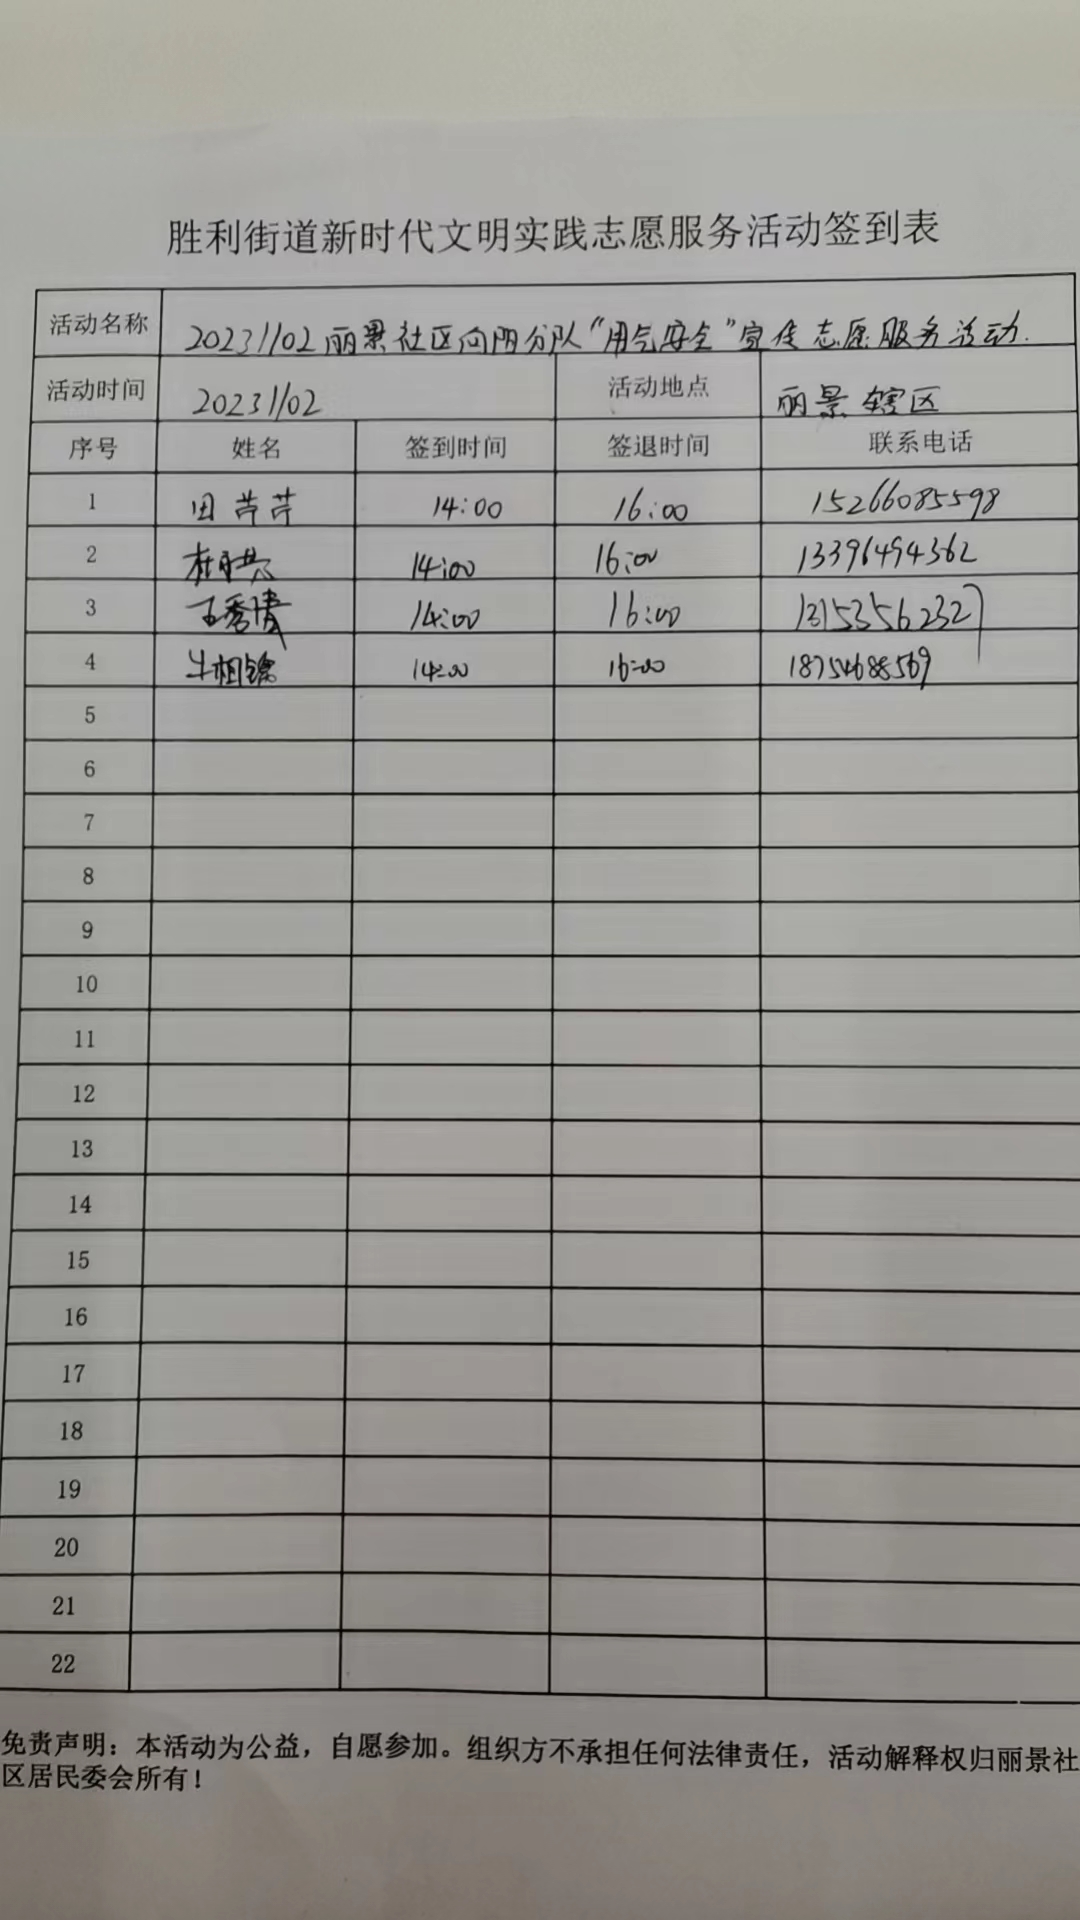 胜利街道新时代文明实践志愿服务活动签到表
活动名称 20231102丽景社区向阳分队“用气安全”宣传志愿服务活动.
活动时间 20231102 活动地点 丽景辖区
序号 姓名 签到时间 签退时间 联系电话
1 田芹芹 14:00 16:00 15266085598
2 14:00 16:00 13396494362
3 王秀倩 14:00 16:00 13153562327
4 牛相锦 14:00 16:00 18754688569
5
6
7
8
9
10
11
12
13
14
15
16
17
18
19
20
21
22
免责声明：本活动为公益，自愿参加。组织方不承担任何法律责任，活动解释权归丽景社
区居民委会所有！